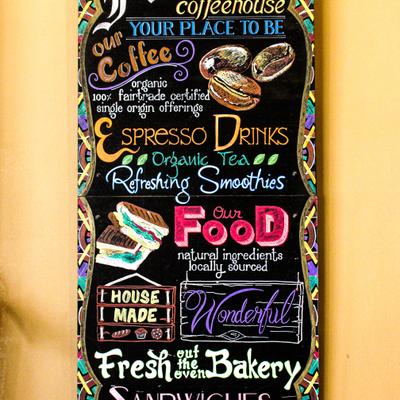 coffeehouse
YOUR PLACE TO BE
Our
Coffee
organic
100% fairtrade certified
single origin offerings
ESPRESSO DRINKS
Organic Tea
Refreshing Smoothies
Our
FOOD
natural ingredients
locally sourced
HOUSE
MADE
Wonderful
Fresh out the oven Bakery
SANDWICHES